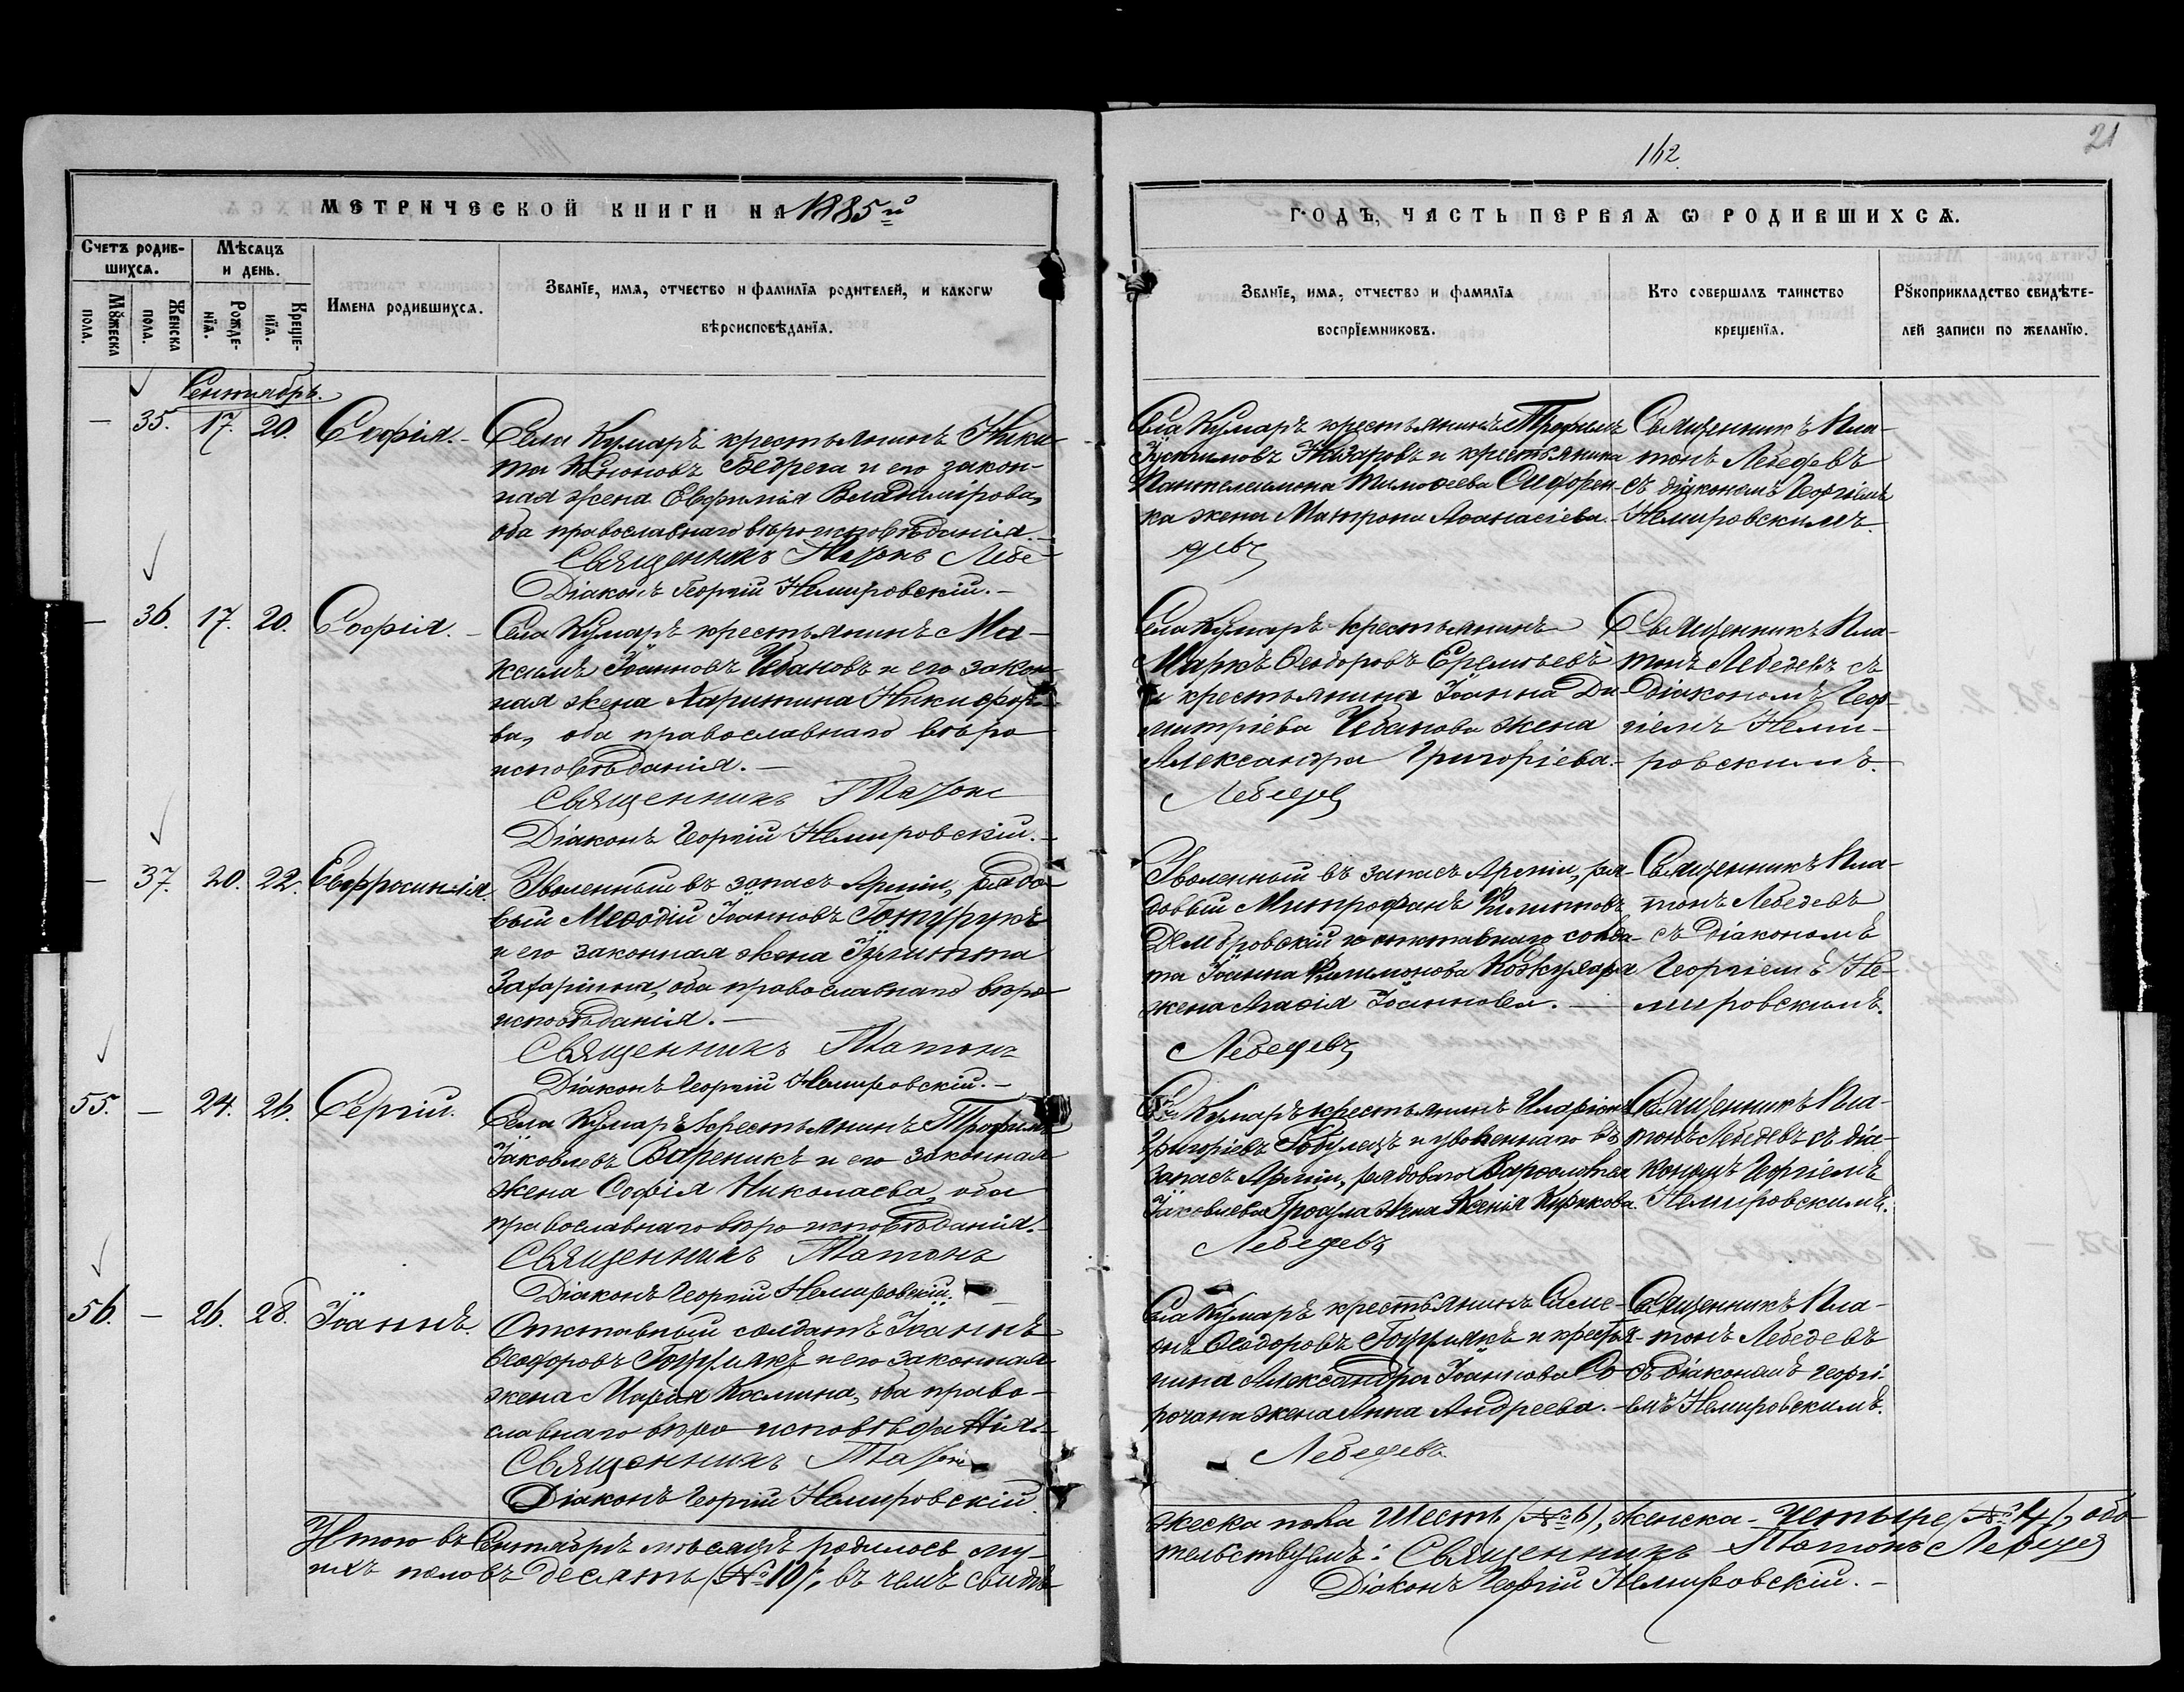 162
21
МЕТРИЧЕСКОЙ КНИГИ НА 1885й
ГОДЪ, ЧАСТЬ ПЕРВАѦ Ѡ РОДИВШИХСѦ.
Счетъ родив-
шихсѧ.
Мѣсѧцъ
и день.
Мꙋжеска
пола.
Женска
пола.
Рожде-
нїѧ.
Креще-
нїѧ.
Имена родившихсѧ.
Званїе, имѧ, отчество и фамилїѧ родителей, и какогѡ
вѣроисповѣданїѧ.
Званїе, имѧ, отчество и фамилїѧ
воспрїемниковъ.
Кто совершалъ таинство
крещенїѧ.
Рꙋкоприкладство свидѣте-
лей записи по желанїю.
Сентябрь.
— 35. 17. 20. Софія.-
Села Кумаръ крестьянинъ Ники-
та Бедрега и его закон-
ная жена Евфимія Владимірова,
оба православнаго вѣроисповѣданія.-
Священникъ Платонъ Лебе-
Діаконъ Георгій Немировскій.-
Села Кумаръ крестьянинъ Трофимъ
Іустиновъ Назаровъ и крестьянина
Пантелеимона Тимоѳеева Сидорен-
ка жена Матрона Аѳанасіева.-
девъ
Священникъ Пла-
тонъ Лебедевъ
съ діакономъ Георгіемъ
Немировскимъ.
— 36. 17. 20. Софія.-
Села Кумаръ крестьянинъ Ма-
ксимъ Іоанновъ Чебановъ и его закон-
ная жена Харитина Никифоро-
ва, оба православнаго вѣро
исповѣданія.-
Священникъ Платонъ
Діаконъ Георгій Немировскій.-
Села Кумаръ крестьянинъ
Маркъ Ѳеодоровъ Еремѣевъ
и крестьянина Іоанна Ди-
митріева Чебанова жена
Александра Григоріева.-
Лебедевъ
Священникъ Пла-
тонъ Лебедевъ съ
Діакономъ Геор-
гіемъ Неми-
ровскимъ.
— 37. 20. 22. Евфросинія.
Уволенный въ запасъ Арміи, рядо-
вый Меѳодій Іоанновъ
и его законная жена Іулитта
Захаріина, оба православнаго вѣро-
исповѣданія.-
Священникъ Платонъ
Діаконъ Георгій Немировскій.-
Уволенный въ запасъ Арміи, ря-
довый Митрофанъ Филипповъ
Домбровскій и отставнаго солда-
та Іоанна Филимонова
жена Агафія Іоаннова.-
Лебедевъ
Священникъ Пла-
тонъ Лебедевъ
съ Діакономъ
Георгіемъ Не-
мировскимъ.
55. — 24. 26. Сергій.
Села Кумаръ крестьянинъ Трофимъ
Іаковлевъ Вареникъ и его законная
жена Софія Николаева, оба
православнаго вѣро-исповѣданія.-
Священникъ Платонъ
Діаконъ Георгій Немировскій.
Села Кумаръ крестьянинъ Иларіонъ
Григоріевъ и уволеннаго въ
запасъ Арміи, рядоваго Варѳоломѣя
Іаковлева жена Ксенія Кирикова.
Лебедевъ
Священникъ Пла-
тонъ Лебедевъ съ діа-
кономъ Георгіемъ
Немировскимъ.
56. — 26. 28. Іоаннъ.
Отставный солдатъ Іоаннъ
Ѳеодоровъ и его законная
жена Марія Космина, оба право-
славнаго вѣро-исповѣданія.-
Священникъ Платонъ
Діаконъ Георгій Немировскій
Села Кумаръ крестьянинъ Симе-
онъ Ѳеодоровъ и крестья-
нина Александра Іоаннова Со-
рочана жена Анна Андреева.-
Лебедевъ
Священникъ Пла-
тонъ Лебедевъ
съ Діакономъ Георгі-
емъ Немировскимъ.
Итого въ Сентябрѣ мѣсяцѣ родилось му-
жеска пола шесть (№ 6), женска - четыре (№ 4), обо-
ихъ половъ десять (№ 10), въ чемъ свидѣ-
тельствуемъ: Священникъ Платонъ Лебедевъ
Діаконъ Георгій Немировскій.-